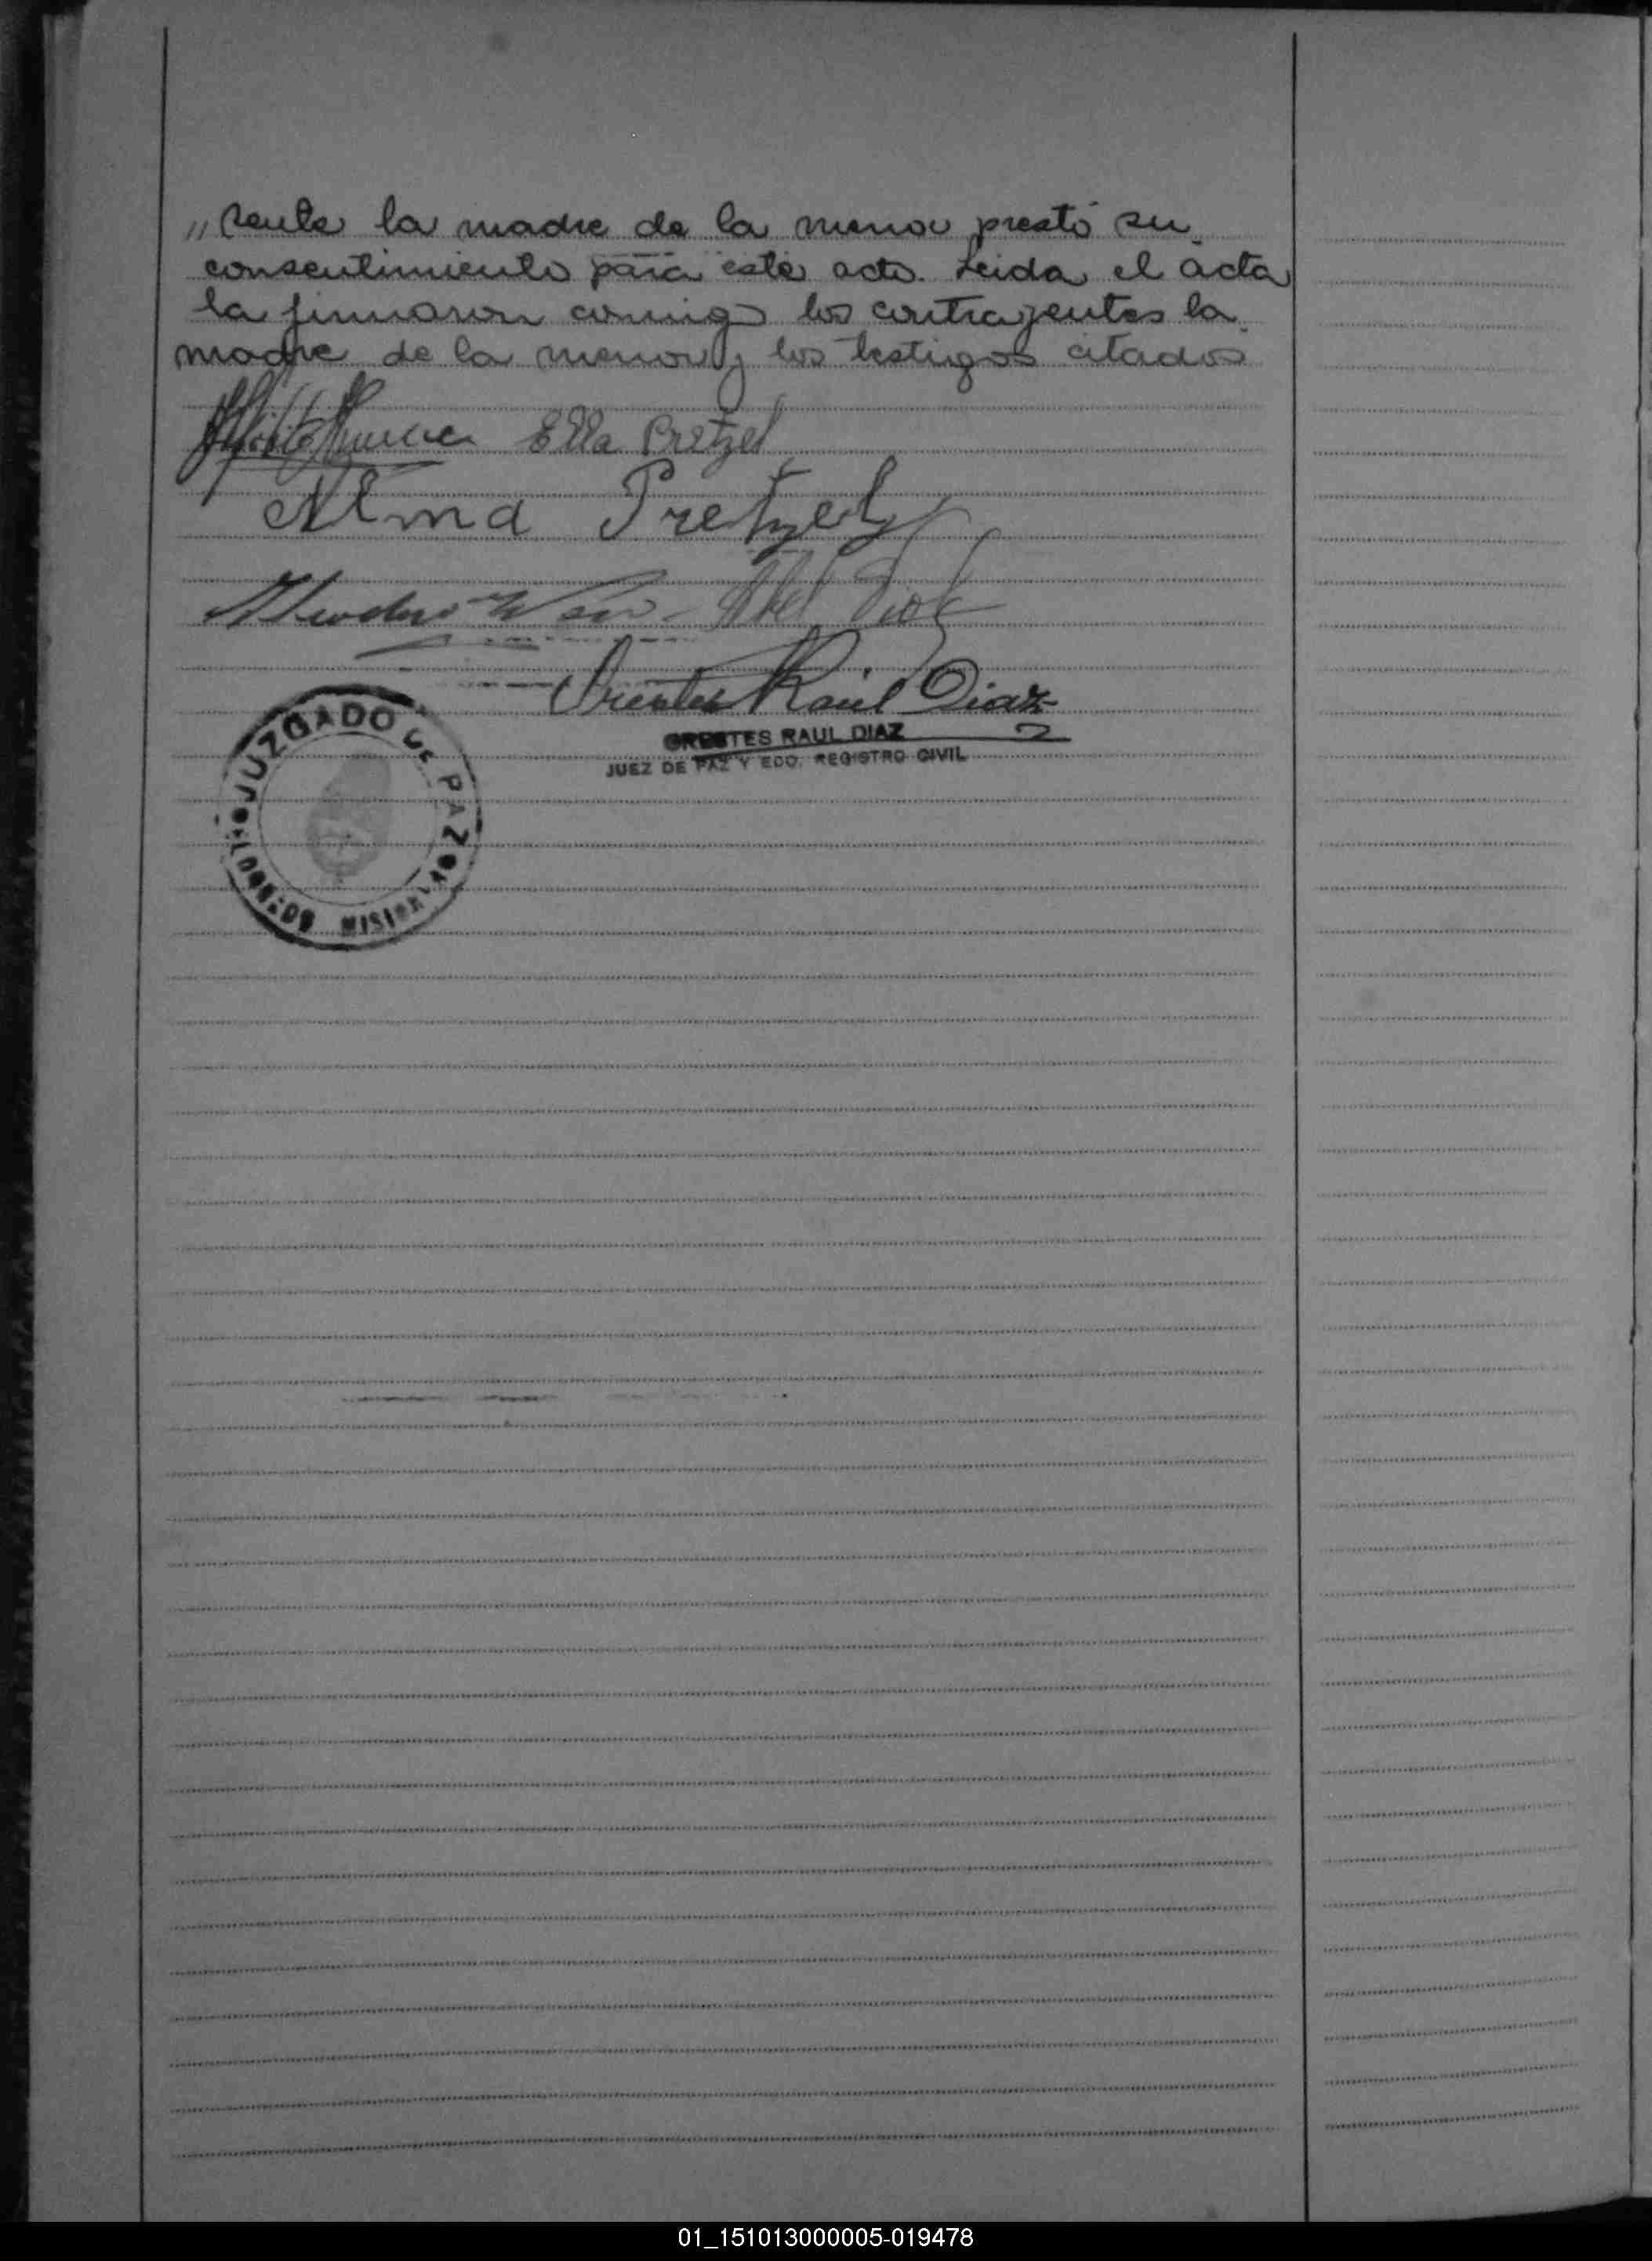 " sente la madre de la menor prestó su
consentimiento para este acto. Leida el acta
la firmaron conmigo los contrayentes la
madre de la menor y los testigos citados
Ella Pretzel
Alma Pretzel
Orestes Raúl Diaz
ORESTES RAUL DIAZ
JUEZ DE PAZ Y EDO. REGISTRO CIVIL
JUZGADO DE PAZ
MISIONES
01_151013000005-019478